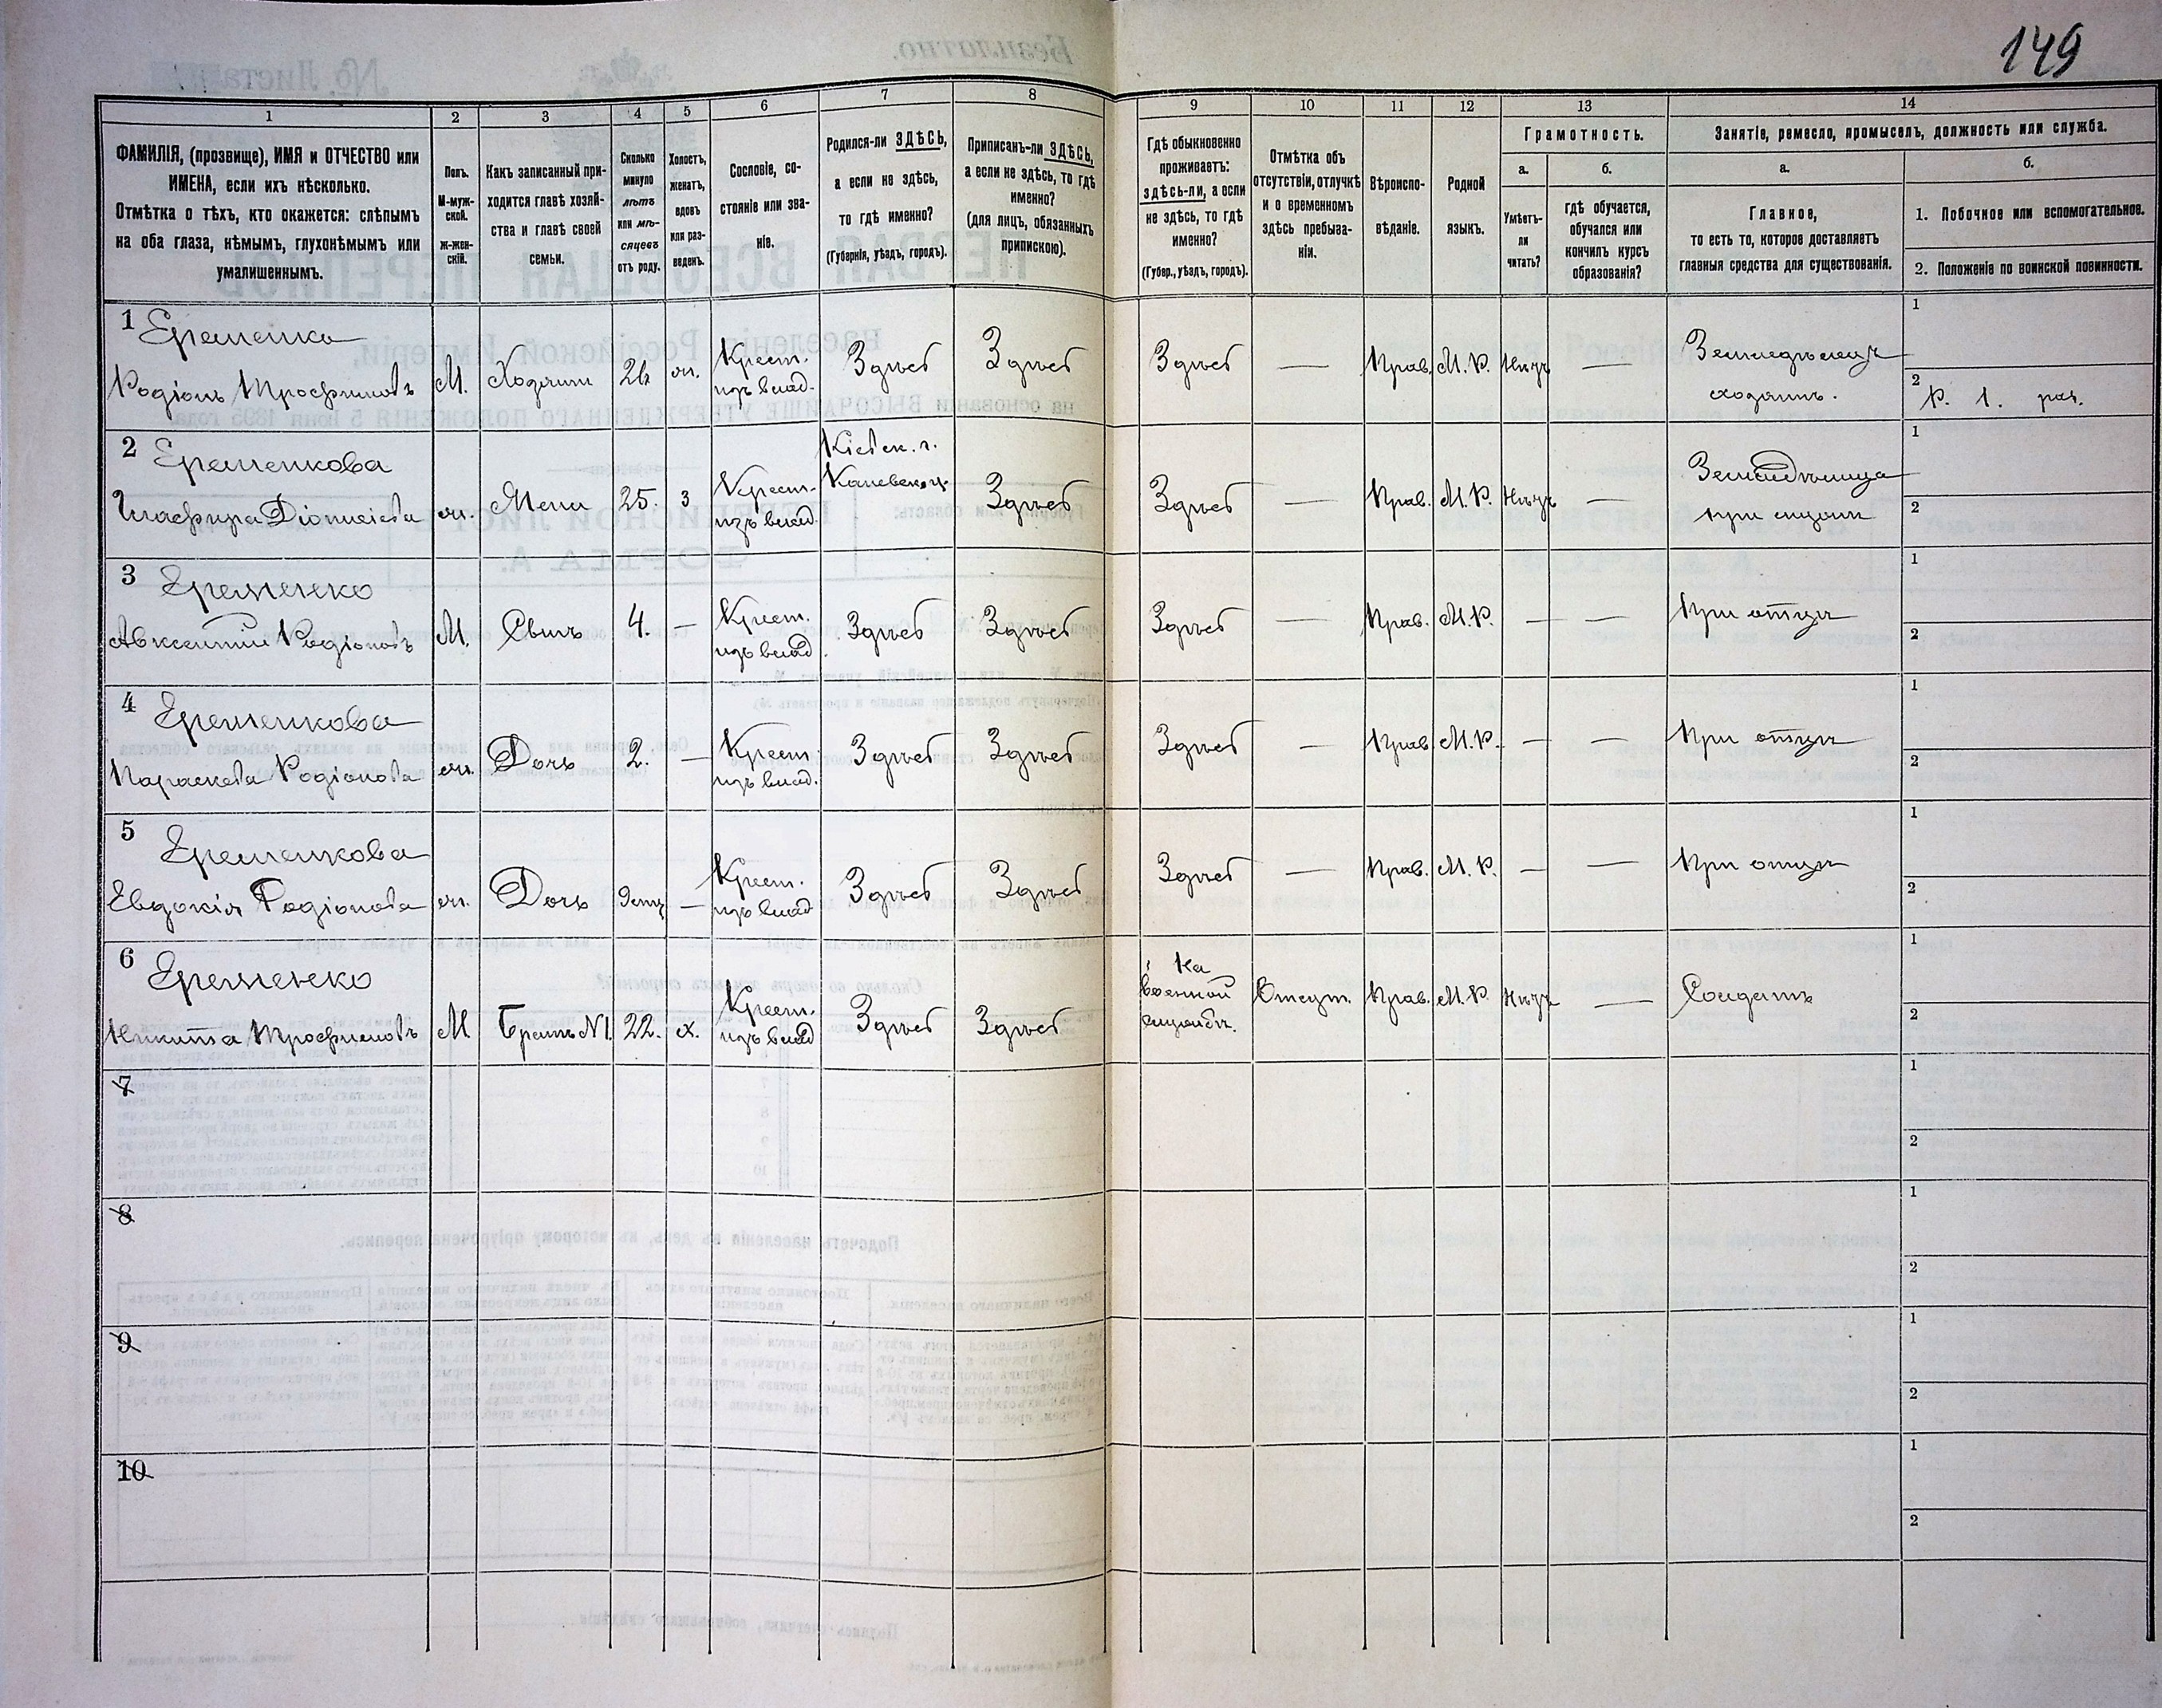 149
1 2 3 4 5 6 7 8 9 10 11 12 13 14
ФАМИЛІЯ, (прозвище), ИМЯ и ОТЧЕСТВО или
ИМЕНА, если ихъ нѣсколько.
Отмѣтка о тѣхъ, кто окажется: слѣпымъ
на оба глаза, нѣмымъ, глухонѣмымъ или
умалишеннымъ.
Полъ.
М-муж-
ской.
ж-жен-
скій.
Какъ записанный при-
ходится главѣ хозяй-
ства и главѣ своей
семьи.
Сколько
минуло
лѣтъ
или мѣ-
сяцевъ
отъ роду.
Холостъ,
женатъ,
вдовъ
или раз-
веденъ.
Сословіе, со-
стояніе или зва-
ніе.
Родился-ли ЗДѢСЬ,
а если не здѣсь,
то гдѣ именно?
(Губернія, уѣздъ, городъ).
Приписанъ-ли ЗДѢСЬ,
а если не здѣсь, то гдѣ
именно?
(для лицъ, обязанныхъ
припискою).
Гдѣ обыкновенно
проживаетъ:
здѣсь-ли, а если
не здѣсь, то гдѣ
именно?
(Губер., уѣздъ, городъ).
Отмѣтка объ
отсутствіи, отлучкѣ
и о временномъ
здѣсь пребыва-
ніи.
Вѣроиспо-
вѣданіе.
Родной
языкъ.
Грамотность.
а.
Умѣетъ-
ли
читать?
б.
гдѣ обучается,
обучался или
кончилъ курсъ
образованія?
Занятіе, ремесло, промыселъ, должность или служба.
а.
Главное,
то есть то, которое доставляетъ
главныя средства для существованія.
б.
1. Побочное или вспомогательное.
2. Положеніе по воинской повинности.
1 Еременко
Родіонъ Трофимовъ М. Хозяинъ 26 ж. Крест. изъ влад. Здѣсь Здѣсь Здѣсь — Прав. М. Р. Нѣтъ — Земледѣлецъ хозяинъ. 1
2 Р. 1. раз.
2 Еременкова
Глафира Діонисіева ж. Жена 25. з Крест. изъ влад. Кіевск. г. Каневск. у. Здѣсь Здѣсь — Прав. М. Р. Нѣтъ — Земледѣлица при мужѣ 1
2
3 Еременко
Авксентій Родіоновъ М. Сынъ 4. — Крест. изъ влад. Здѣсь Здѣсь Здѣсь — Прав. М. Р. — — При отцѣ 1
2
4 Еременкова
Параскева Родіонова ж. Дочь 2. — Крест. изъ влад. Здѣсь Здѣсь Здѣсь — Прав. М. Р. — — При отцѣ 1
2
5 Еременкова
Евдокія Родіонова ж. Дочь — Крест. изъ влад. Здѣсь Здѣсь Здѣсь — Прав. М. Р. — — При отцѣ 1
2
6 Еременко
Никита Трофимовъ М Братъ №1. 22. х. Крест. изъ влад. Здѣсь Здѣсь На военной службѣ. Отсут. Прав. М. Р. Нѣтъ — Солдатъ 1
2
7 1
2
8 1
2
9 1
2
10 1
2